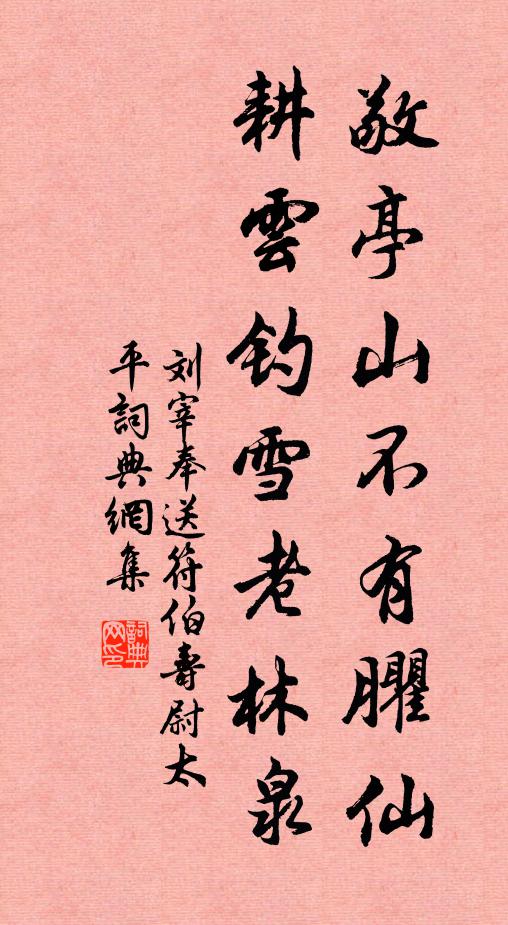 敬亭山不有臞仙
耕雲釣雪老林泉
刘宰奉送符伯壽尉太
平詞典網集
詞典
网印